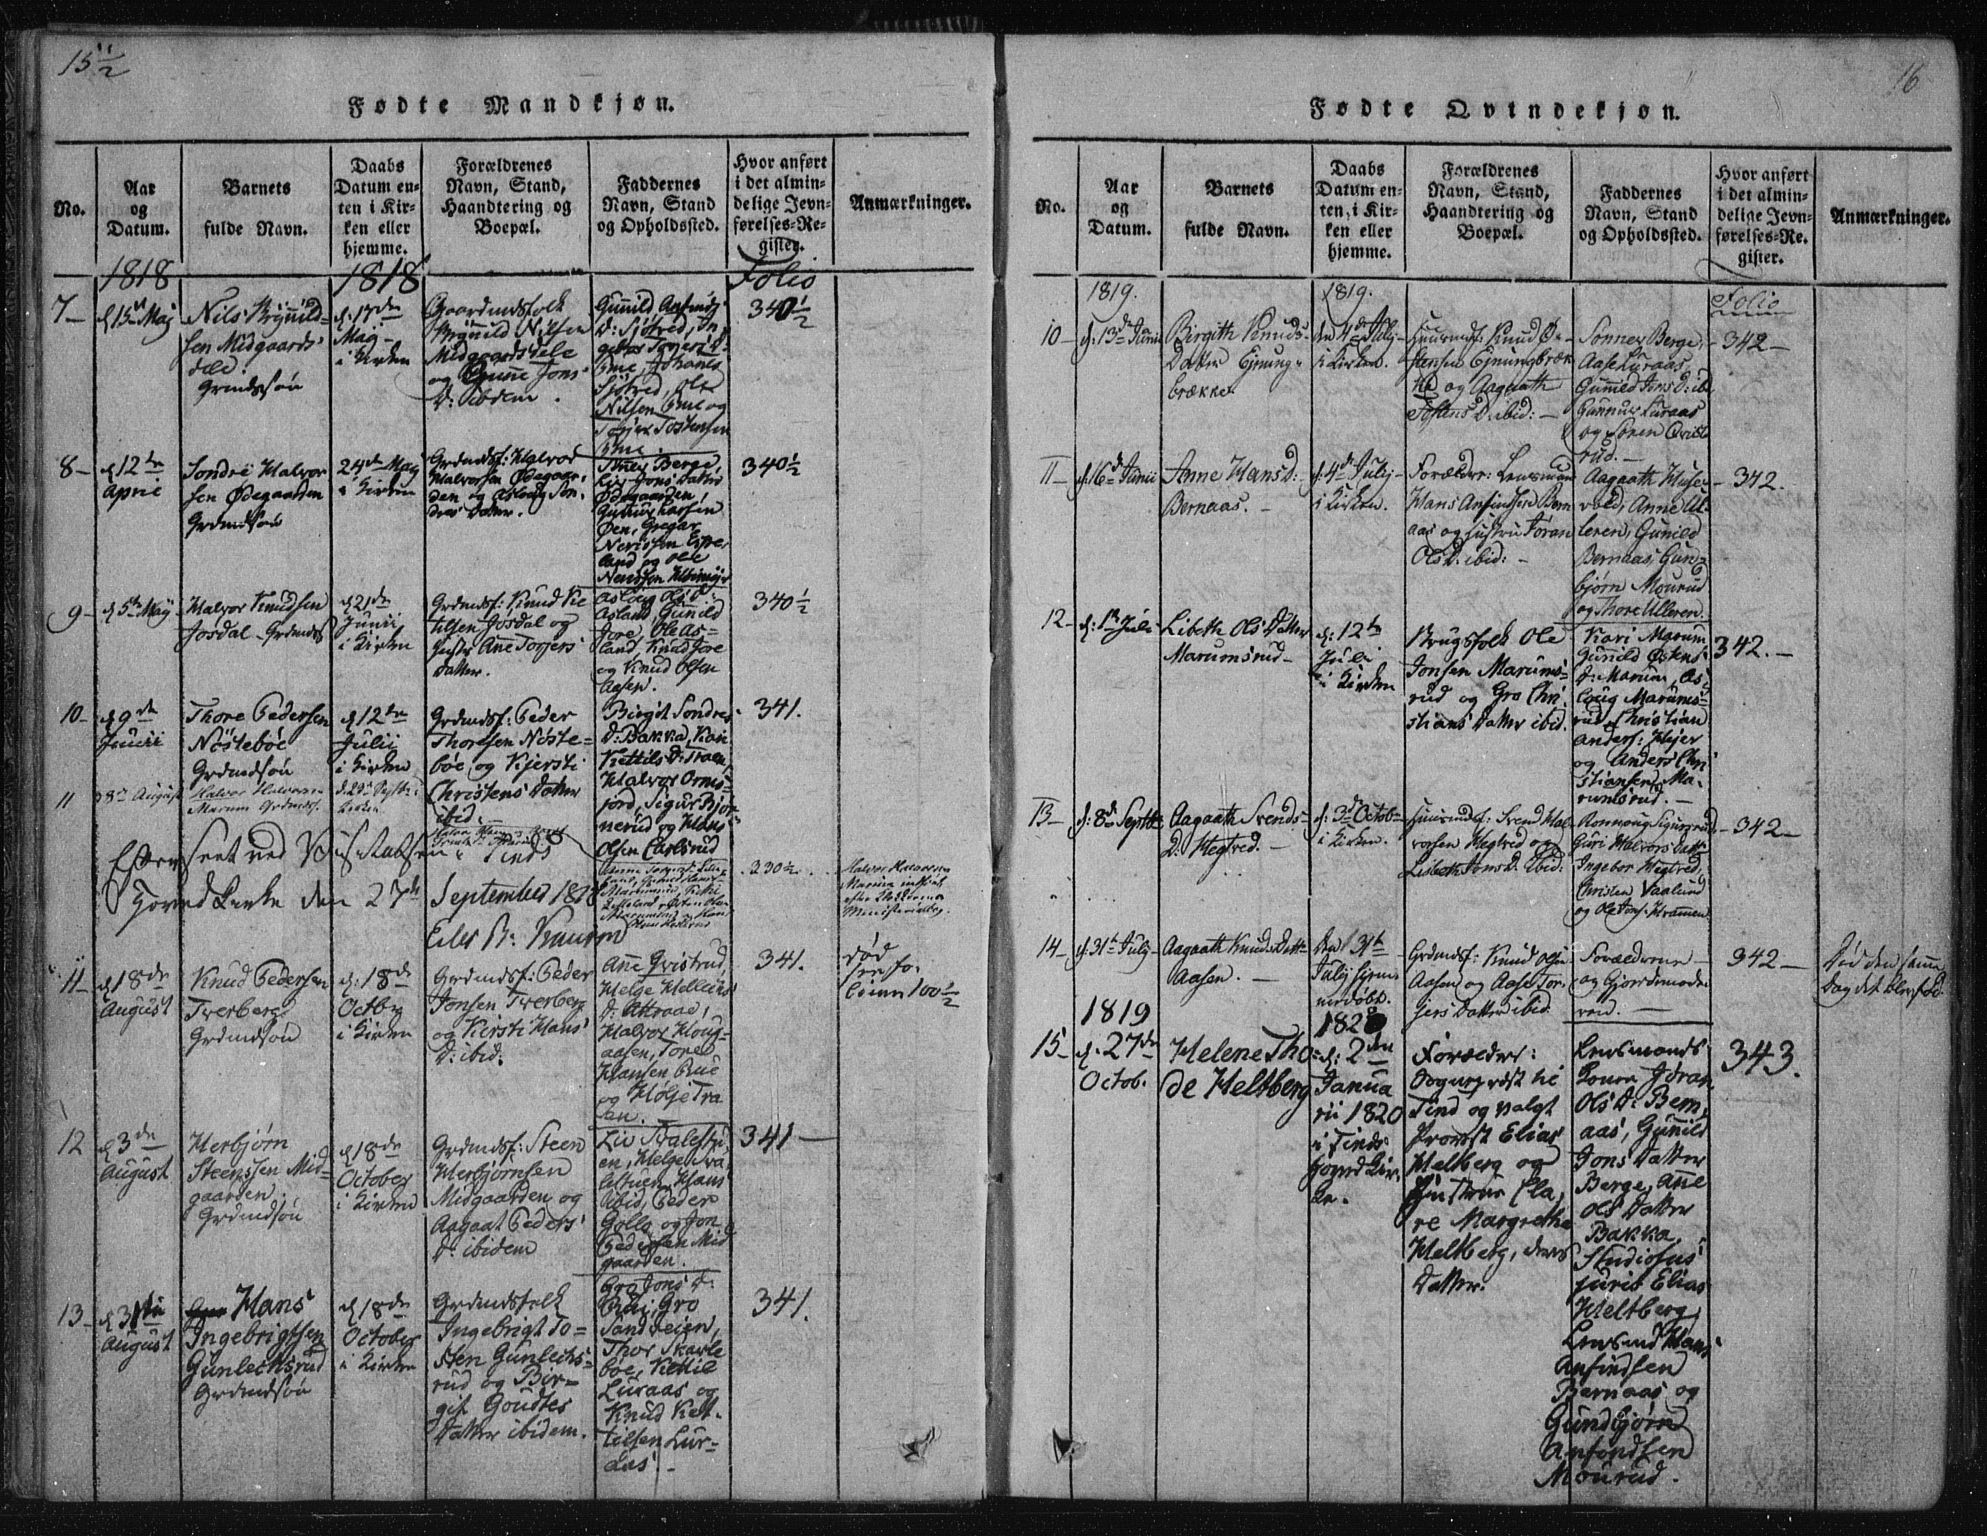 15 1/2
Fødte Mandkjøn.
No.
Aar
og
Datum.
Barnets
fulde Navn.
Daabs
Datum en-
ten i Kir-
ken eller
hjemme.
Forældrenes
Navn, Stand,
Haandtering og
Boepæl.
Faddernes
Navn, Stand
og Opholdssted.
Hvor anført
i det almin-
delige Jevn-
førelses-Re-
gister.
Anmærkninger.
1818
1818
Folio
7-
d 15de Maj
Nils Brÿnild-
sen Midgaards-
dele.
Grdmdssön
d. 17de
Maj-
i Kirken
Gaardmdsfolk
Brÿnild Nilsen
Midgaardsdele
og Jons
D: ibdem.
Gunild Anfinds
D: Sjötred,
Johans
Sjötred, Ole
Nilsen og
Tostensen
340 1/2
8-
d 12te
April
Sondre Halvor
sen Ødegaarden
Grdmdssön
24de Maj
i Kirken
Grdmdsf: Halvor
Halvorsen Ødegaar-
den og Aslaug Son-
dres Datter.
Berge,
Liv Jons Datter
Ødegaarden,
Gunnur Larsen
Öen, Gregar
land og Ole
340 1/2
9-
d 5te Maÿ
Halvor Knudsen
Josdal Grdmdss
d 21de
Junii
i Kirken
Grdmdsf: Knud Ke
tilsen Josdal og
Hustr Ane Torgers
Datter.
Aslöug Ols D:
Asland, Gunild
Jore, Ole As-
land, Knud Jore
og Knud Olsen
Aasen.
340 1/2
10-
d 9de
Junii
Thore Pedersen
Nöstebøe
Grdmdssön
d 12te
Julii
i Kirken
Grdmdsf: Peder
Thoresen Nöste-
bøe og Kjersti
Christens Datter
ibid.-
Birgit Sondres
D: Bakka, Kari
Kettils D: Traen,
Halvor Orms-
jord, Sigur Björ-
nerud og Hans
Olsen Carlsrud
341.
11
8de August
Halvor Halvorsen
Marum Grdmdss.
d. 29de Septbr i
Kirken
330 1/2
Halvor Halvorsen
Marum indført
efter Klokkerens
Ministerialbog.
Efterseet ved Visitatsen i Tinds
Hoved Kirke den 27de September 1818
11-
d 18de
August
Knud Pedersen
Tverberg
Grdmdssön
d: 18de
Octbr
i Kirken
Grdmdsf: Peder
Jonsen Tverberg
og Kirsti Hans
D: ibid:
Ane Qvistrud,
Helge Hellicks
D: Attraae,
Halvor Houg-
aasen, Tore
Hansen Bue
og Hölje Tra
en.
341.
död
see fo-
leien 100 1/2
12
d 3de
August
Herbjørn
Steenssen Mid-
gaarden.
Grdmdssön
d 18de
October
i Kirken
Grdmdsf: Steen
Herbjørnsen
Midgaarden og
Aagaat Peders
D: ibidem
Liv Svalestu
en, Helge Sva
lestuen, Hans
ibid, Peder
Gollo og Jon
Pedersen Mid
gaarden.
341-
13-
d 31te
August
Hans
Ingebrigtsen
Gunlechsrud
Grdmdssön
d 18de
October
i Kirken
Grdmdsfolk
Ingebrigt To-
sten Gunlechs-
rud og Bir-
git Goudtes
Datter ibidem.
Gro Jons D:
Bui, Gro
Sandveien,
Thor Skarle
böe, Kettil
Luraas og
Knud Ket-
tilsen Lur-
aas.-
341.
16
Fødte Qvindekjøn.
No.
Aar
og
Datum.
Barnets
fulde Navn.
Daabs
Datum en-
ten i Kir-
ken eller
hjemme.
Forældrenes
Navn, Stand,
Haandtering og
Boepæl.
Faddernes
Navn, Stand
og Opholdssted.
Hvor anført
i det almin-
delige Jevn-
førelses-Re-
gister.
Anmærkninger.
1819.
1819.
Folio
10-
d. 13de Junii
Birgith Knuds-
Datter Ejnung-
brække
den 4de Julj
i Kirken.
Huusmdsf: Knud Ø-
stensen Ejnungbræk-
ke og Aagaath
Tostens D: ibid:-
Sonner Berge,
Aase Luraas,
Gunnild Jons D: ib
Gunnur Luraas
og Søren Qvist
rud.-
342-
11-
d. 16de Junii
Anne Hans D:
Bernaas.-
d. 4de Julj-
i Kirken.
Forældre: Lensmand
Hans Anfindsen Bern
aas og Hustru Jöran
Ols D: ibid:-
Aagaath Huse-
vold, Anne Ul-
leren, Gunild
Bernaas, Gun-
bjørn Mourud
og Thore Ulleren.
342.
12-
d. 1te Juli
Lisbeth Ols Datter
Marumsrud-
d. 12te
Juli
i Kirken
Brugsfolk Ole
Jonsen Marums-
rud og Gro Chri-
stians Datter ibid.
Kari Marum
Gunild Østens
D: Marum, As-
loug Marums-
rud, Christian
Anders: Hejer
og Anders Chri
stiansen Ma-
rumsrud.-
342.-
13-
d. 8de Septbr
Aagaath Svends-
D: Hegtred.-
d. 3de Octob-
i Kirken.
Huusmdsf: Svend Hal-
vorsen Hegtred og
Lisbeth Jons D. ibid:
Ronnoug Sigursrud
Guri Halvors Datt:
Ingebor Hegtred,
Christen Vaalund
og Ole Jons: Hrammen
342-
14-
d. 31te Julj-
Aagaath Knuds Datt:
Aasen.-
den 31te
Julj hjem-
medøbt.
Grdmdsf: Knud Olsen
Aasen og Aase Tor-
gers Datter ibid.
Forældrene
og Gjordemode-
ren.-
342-
Död den samme
Dag det blev föd.
1819
1820
15-
d. 27de
Octob.
Helene Tho-
de Heltberg
d: 2den
Janua
rii 1820
i Tinds
Hoved Kir-
ke.
Forældre:
Sognepræst til
Tind og valgt
Provst Elias
Heltberg og
Hustrue Cla-
re Margretha
Heltberg, deres
Datter.
Lensmands
Konen Jöran
Ols D: Bern,
aas, Gunild
Jons Datter
Berge, Ane
Ols Datter
Bakka,
Studiosus
juris Elias
Heltberg,
Lensmd Hans
Anfindsen
Bernaas og
Gundbjørn
Anfindsen
Mourud.
343.